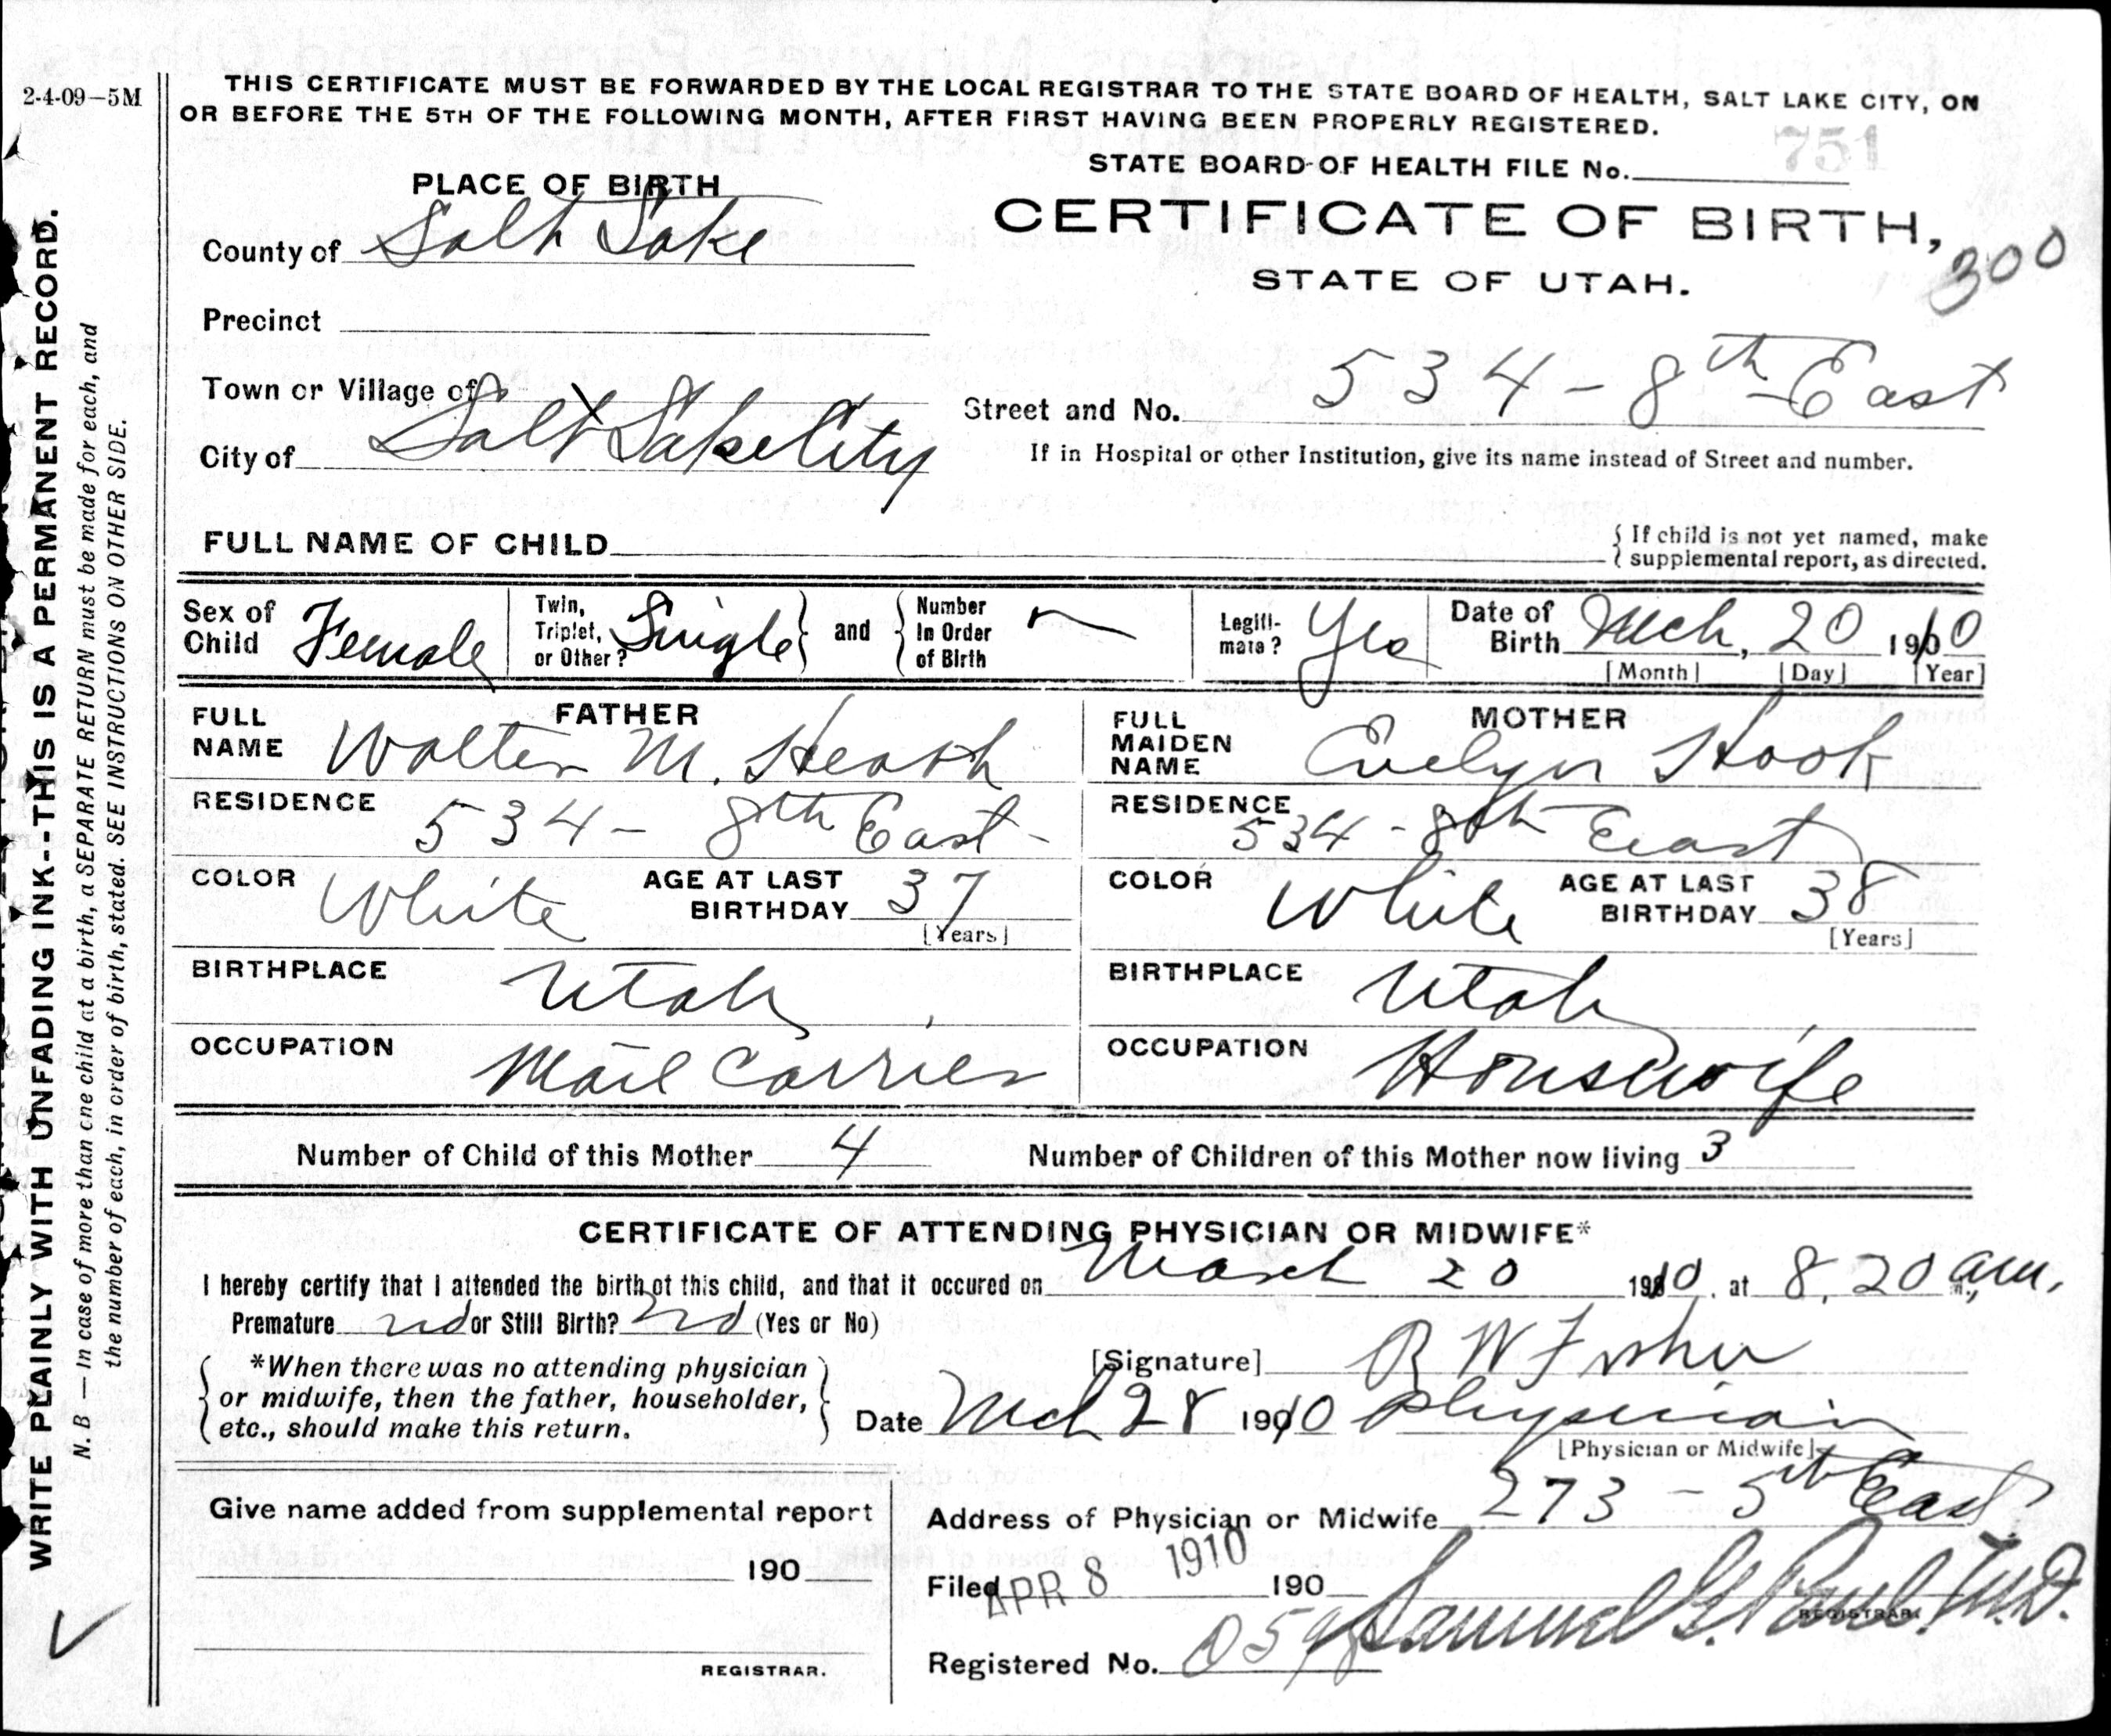 2-4-09–5M
THIS CERTIFICATE MUST BE FORWARDED BY THE LOCAL REGISTRAR TO THE STATE BOARD OF HEALTH, SALT LAKE CITY, ON
OR BEFORE THE 5TH OF THE FOLLOWING MONTH, AFTER FIRST HAVING BEEN PROPERLY REGISTERED.
751
STATE BOARD OF HEALTH FILE No.
PLACE OF BIRTH
CERTIFICATE OF BIRTH,
300
STATE OF UTAH.
County of Salt Lake
Precinct
Town or Village of
City of Salt Lake City
Street and No. 534 - 8th East
If in Hospital or other Institution, give its name instead of Street and number.
FULL NAME OF CHILD
{ If child is not yet named, make
supplemental report, as directed.
Sex of Child Female
Twin, Triplet, or Other? Single } and { Number In Order of Birth
Legiti-mate? Yes
Date of Birth Mch, 20 1910
[Month] [Day] [Year]
FATHER
FULL NAME Walter M. Heath
RESIDENCE 534 - 8th East -
COLOR White AGE AT LAST BIRTHDAY 37
[Years]
BIRTHPLACE Utah
OCCUPATION Mail Carrier
MOTHER
FULL MAIDEN NAME Evelyn Hook
RESIDENCE 534 - 8th East
COLOR White AGE AT LAST BIRTHDAY 38
[Years]
BIRTHPLACE Utah
OCCUPATION Housewife
Number of Child of this Mother 4 Number of Children of this Mother now living 3
CERTIFICATE OF ATTENDING PHYSICIAN OR MIDWIFE*
I hereby certify that I attended the birth of this child, and that it occured on March 20 1910, at 8,20 am.
Premature no or Still Birth? no (Yes or No)
*When there was no attending physician
or midwife, then the father, householder,
etc., should make this return.
[Signature] R W Fisher
Date Mch 28 1910 Physician
[Physician or Midwife]
Give name added from supplemental report
190
REGISTRAR.
Address of Physician or Midwife 273 - 5th East
Filed APR 8 1910 190
Samuel G. Paul, M.D.
REGISTRAR.
Registered No.
WRITE PLAINLY WITH UNFADING INK--THIS IS A PERMANENT RECORD.
N. B — In case of more than one child at a birth, a SEPARATE RETURN must be made for each, and
the number of each, in order of birth, stated. SEE INSTRUCTIONS ON OTHER SIDE.